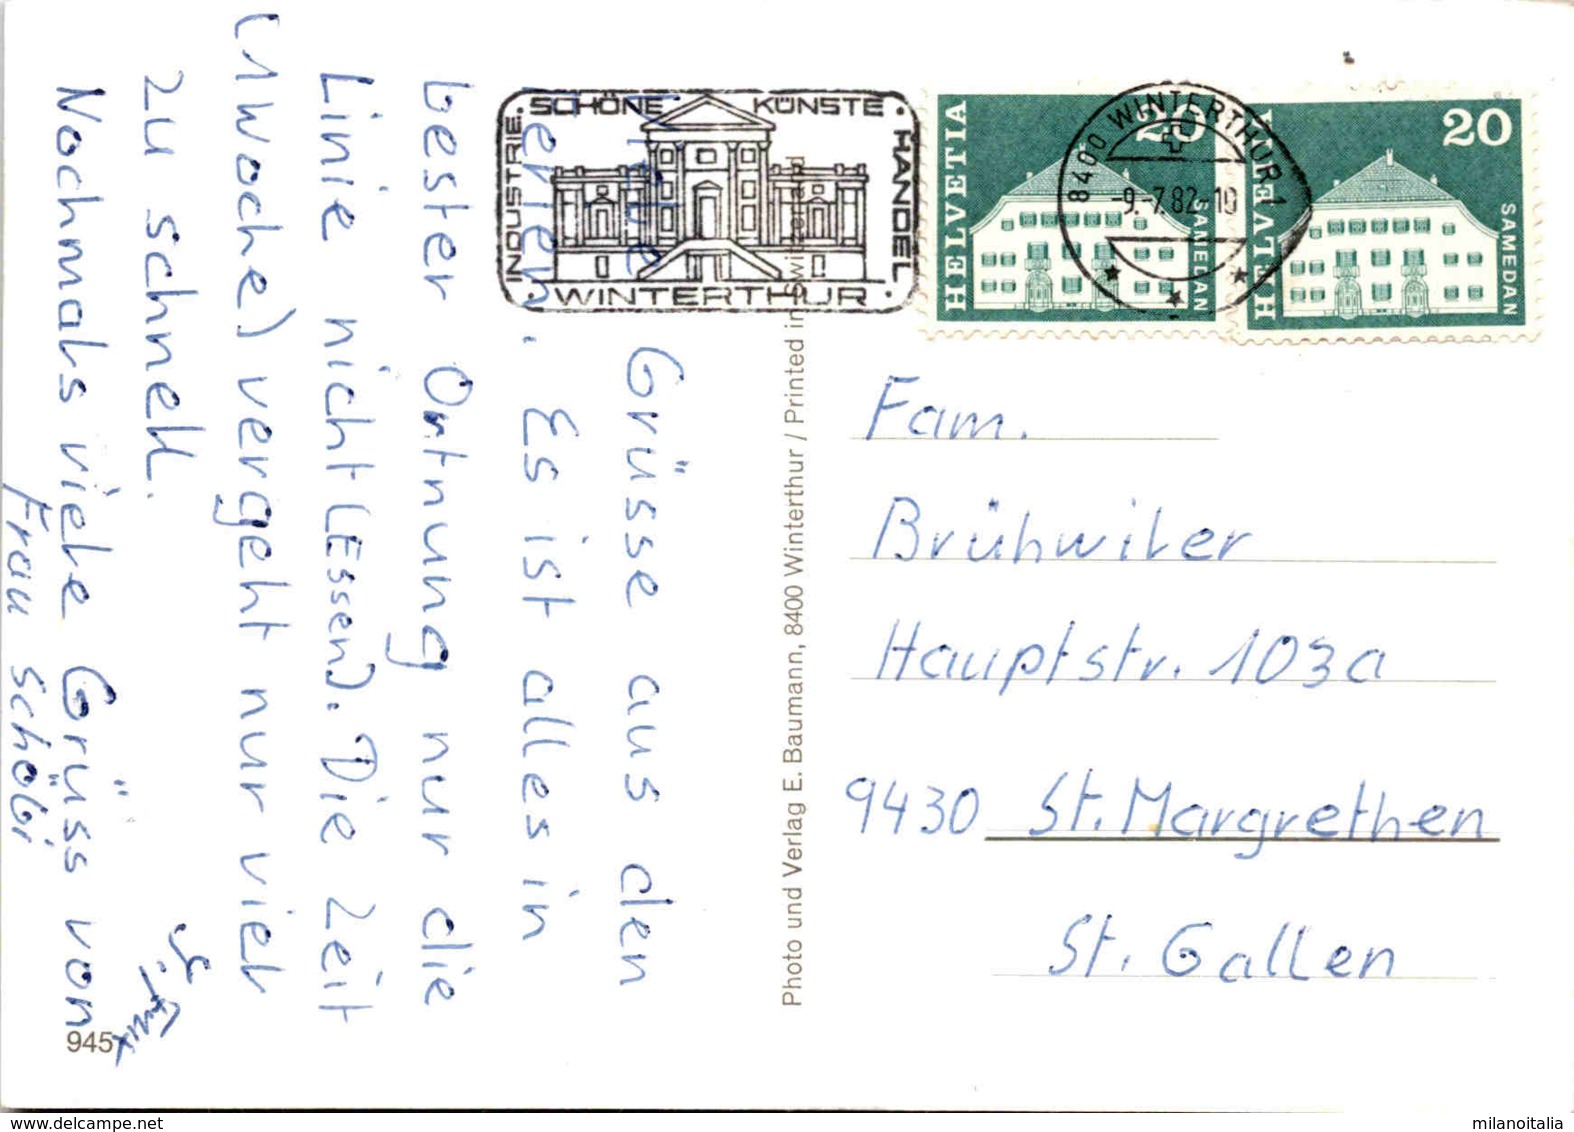 Liebe Grüsse aus den
Ferien. Es ist alles in
bester Ortnung nur die
Linie nicht (Essen). Die Zeit
(1 Woche) vergeht nur viel
zu schnell.
Nochmals viele Grüss von
Frau Schöbi
INDUSTRIE · SCHÖNE KÜNSTE · HANDEL
· WINTERTHUR ·
8400 WINTERTHUR 1
-9.-7.82-10
HELVETIA 20 SAMEDAN
HELVETIA 20 SAMEDAN
Photo und Verlag E. Baumann, 8400 Winterthur / Printed in Switzerland
Fam.
Brühwiler
Hauptstr. 103a
9430 St. Margrethen
St. Gallen
945
delcampe.net
milanoitalia